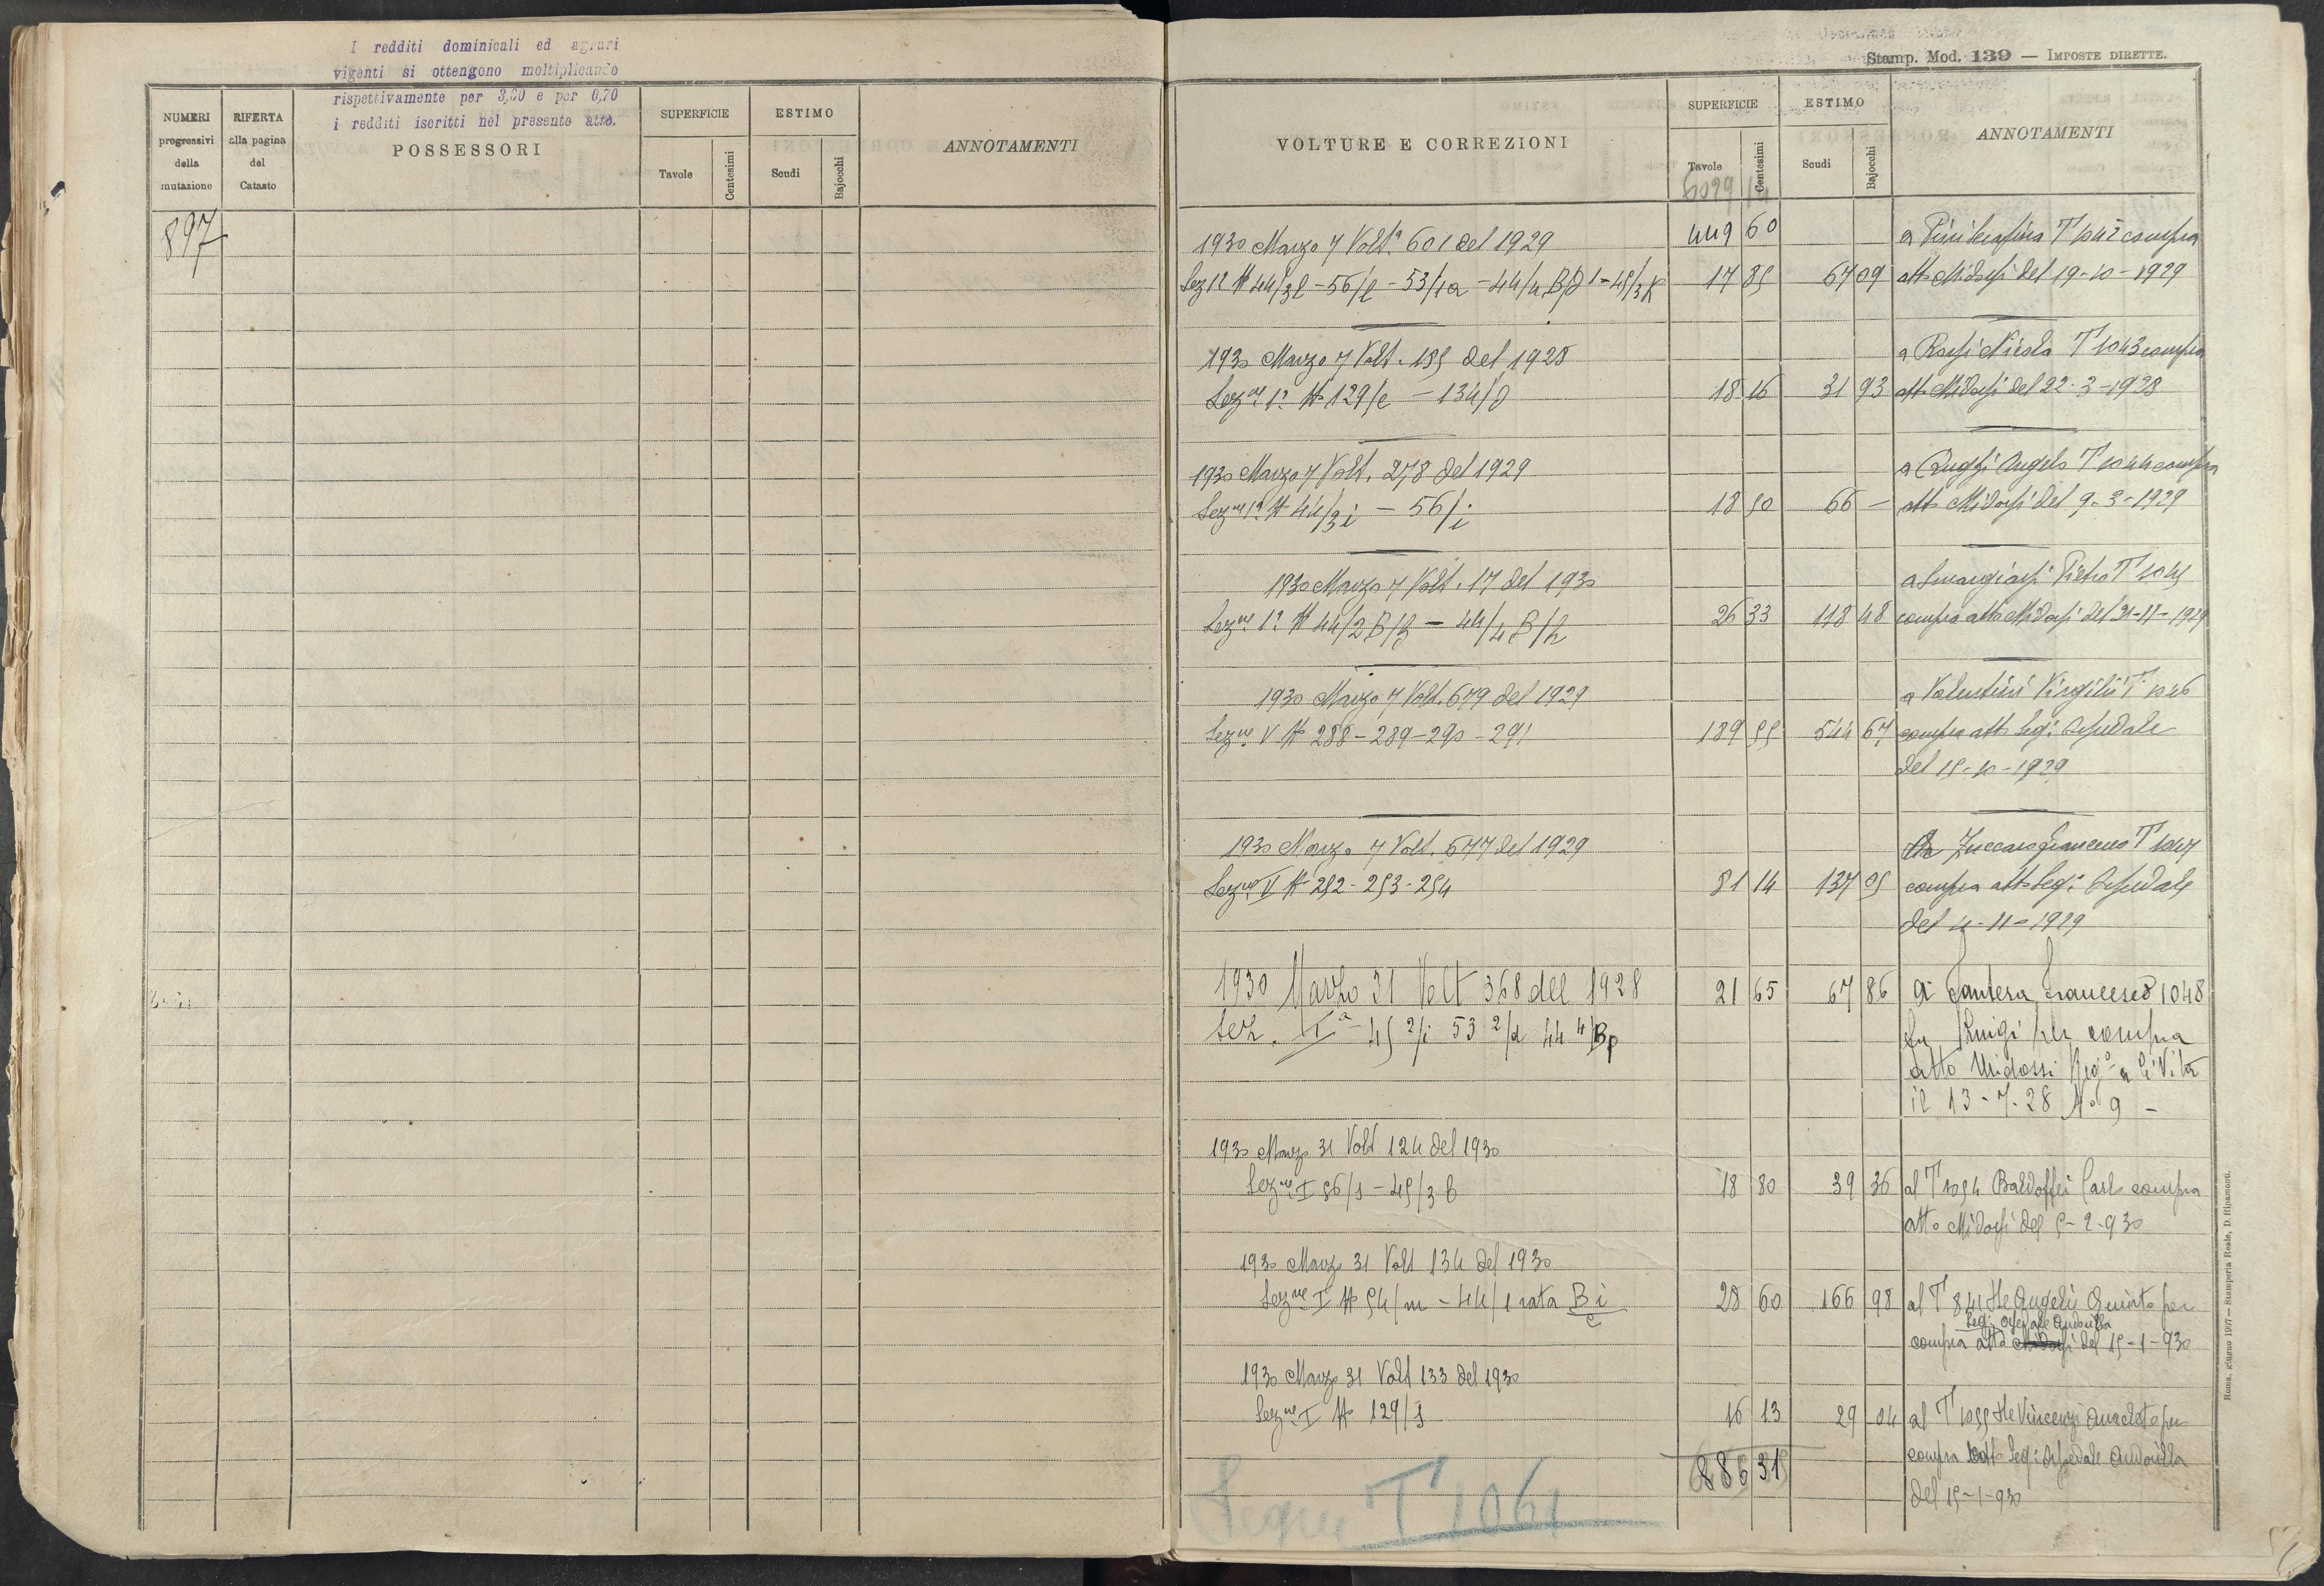 I redditi dominicali ed agrari
vigenti si ottengono moltiplicando
rispettivamente per 3,60 e per 0,70
i redditi iscritti nel presente atto.
NUMERI
progressivi
della
mutazione
RIFERTA
alla pagina
del
Catasto
POSSESSORI
SUPERFICIE
Tavole
Centesimi
ESTIMO
Scudi
Bajocchi
ANNOTAMENTI
897
Stamp. Mod. 139 — IMPOSTE DIRETTE.
VOLTURE E CORREZIONI
SUPERFICIE
Tavole
Centesimi
ESTIMO
Scudi
Bajocchi
ANNOTAMENTI
1930 Marzo 7 Volt.ª 601 del 1929 449 60 a Pini Serafina T 1042 compra
Sez 1ª N 44/3l - 56/l - 53/1a - 17 85 67 09 atto Midossi del 19-10-1929
1930 Marzo 7 Volt. 155 del 1928 a Rossi Nicola T 1043 compra
Sezne 1ª N 129/e - 134/ 18 16 31 93 atto Midossi del 22-3-1928
1930 Marzo 7 Volt. 278 del 1929 a Angelo T 1044 compra
Sezne 1ª N 44/3i - 56/i 18 50 66 - atto Midossi del 9-3-1929
1930 Marzo 7 Volt. 17 del 1930 a Smargiassi Pietro T 1045
Sezne 1ª N 44/2 B/ - 44/4 B/h 26 33 118 48 compra atto Midossi del 21-11-1929
1930 Marzo 7 Volt. 679 del 1929 a Valentini Virgilio T 1046
Sezne V N 288 - 289 - 290 - 291 189 55 544 67 compra atto Seg: Ospedale
del 15-10-1929
1930 Marzo 7 Volt. 677 del 1929 a Zuccaro Francesco T 1047
Sezne V N 252 - 253 - 254 81 14 137 05 compra atto Seg: Ospedale
del 4-11-1929
1930 Marzo 31 Volt 368 del 1928 21 65 67 86 a Santesa Francesco 1048
Sez. Iª - 45 2/i 53 2/a 44 4/Bp fu Luigi per compra
atto Midossi Reg.º a Civita
il 13-7-28 Nº 9 -
1930 Marzo 31 Volt 124 del 1930
Sezne I 56/s - 45/3 b 18 80 39 36 al T 1054 Baldoffei Carlo compra
atto Midossi del 5-2-930
1930 Marzo 31 Volt 134 del 1930
Sezne I N 54/m - 44/1 rata B i 28 60 166 98 al T 841 De Angelis Quinto per
c
Seg: Ospedale
compra atto Midossi del 15-1-930
1930 Marzo 31 Volt 133 del 1930
Sezne I N 129/s 16 13 29 04 al T 1055 De Vincenzi Anacleto per
compra atto Seg: Ospedale
886 31
del 15-1-930
Segue T 1061
Roma, giugno 1927 — Stamperia Reale, D. Ripamonti.